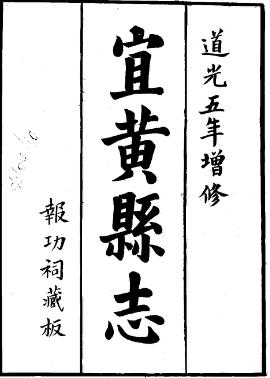 道光五年增修
宜黄縣志
報功祠藏板